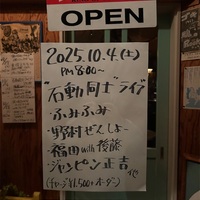 OPEN
2025.10.4.(土)
PM 8:00〜
"石動同士"ライブ
・ふみふみ
・野村ぜんしょー
・福田 with 後藤
・ジャンピン正吉 他
(チャージ¥1,500+オーダー)